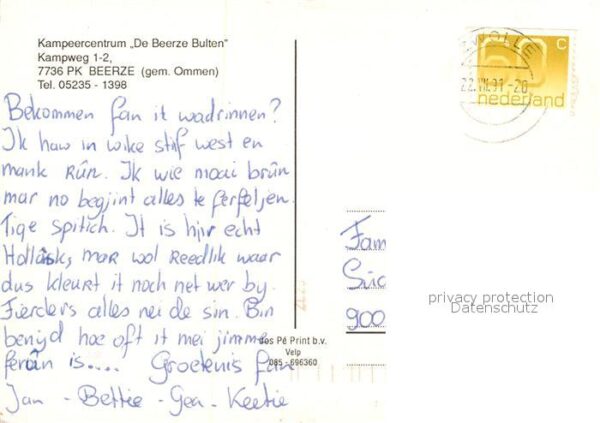 Kampeercentrum „De Beerze Bulten"
Kampweg 1-2,
7736 PK BEERZE (gem. Ommen)
Tel. 05235 - 1398
Bekommen fan it wadrinnen?
Ik haw in wike stiif west en
mank Rûn. Ik wie moai brûn
mar no begjint alles te ferfeljen.
Tige spitich. It is hjir echt
Hollânsk, mar wol Reedlik waar
dus kleurt it noch net wer by.
Fierders alles nei de sin. Bin
benijd hoe oft it mei jimme
ferân is.... Groetenis fan
Jan - Bettie - Gea - Keetie
ZWOLLE
22.VII.91-20
60 C
nederland
Fam
Süd
900
privacy protection
Datenschutz
Pé Print b.v.
Velp
085 - 696360